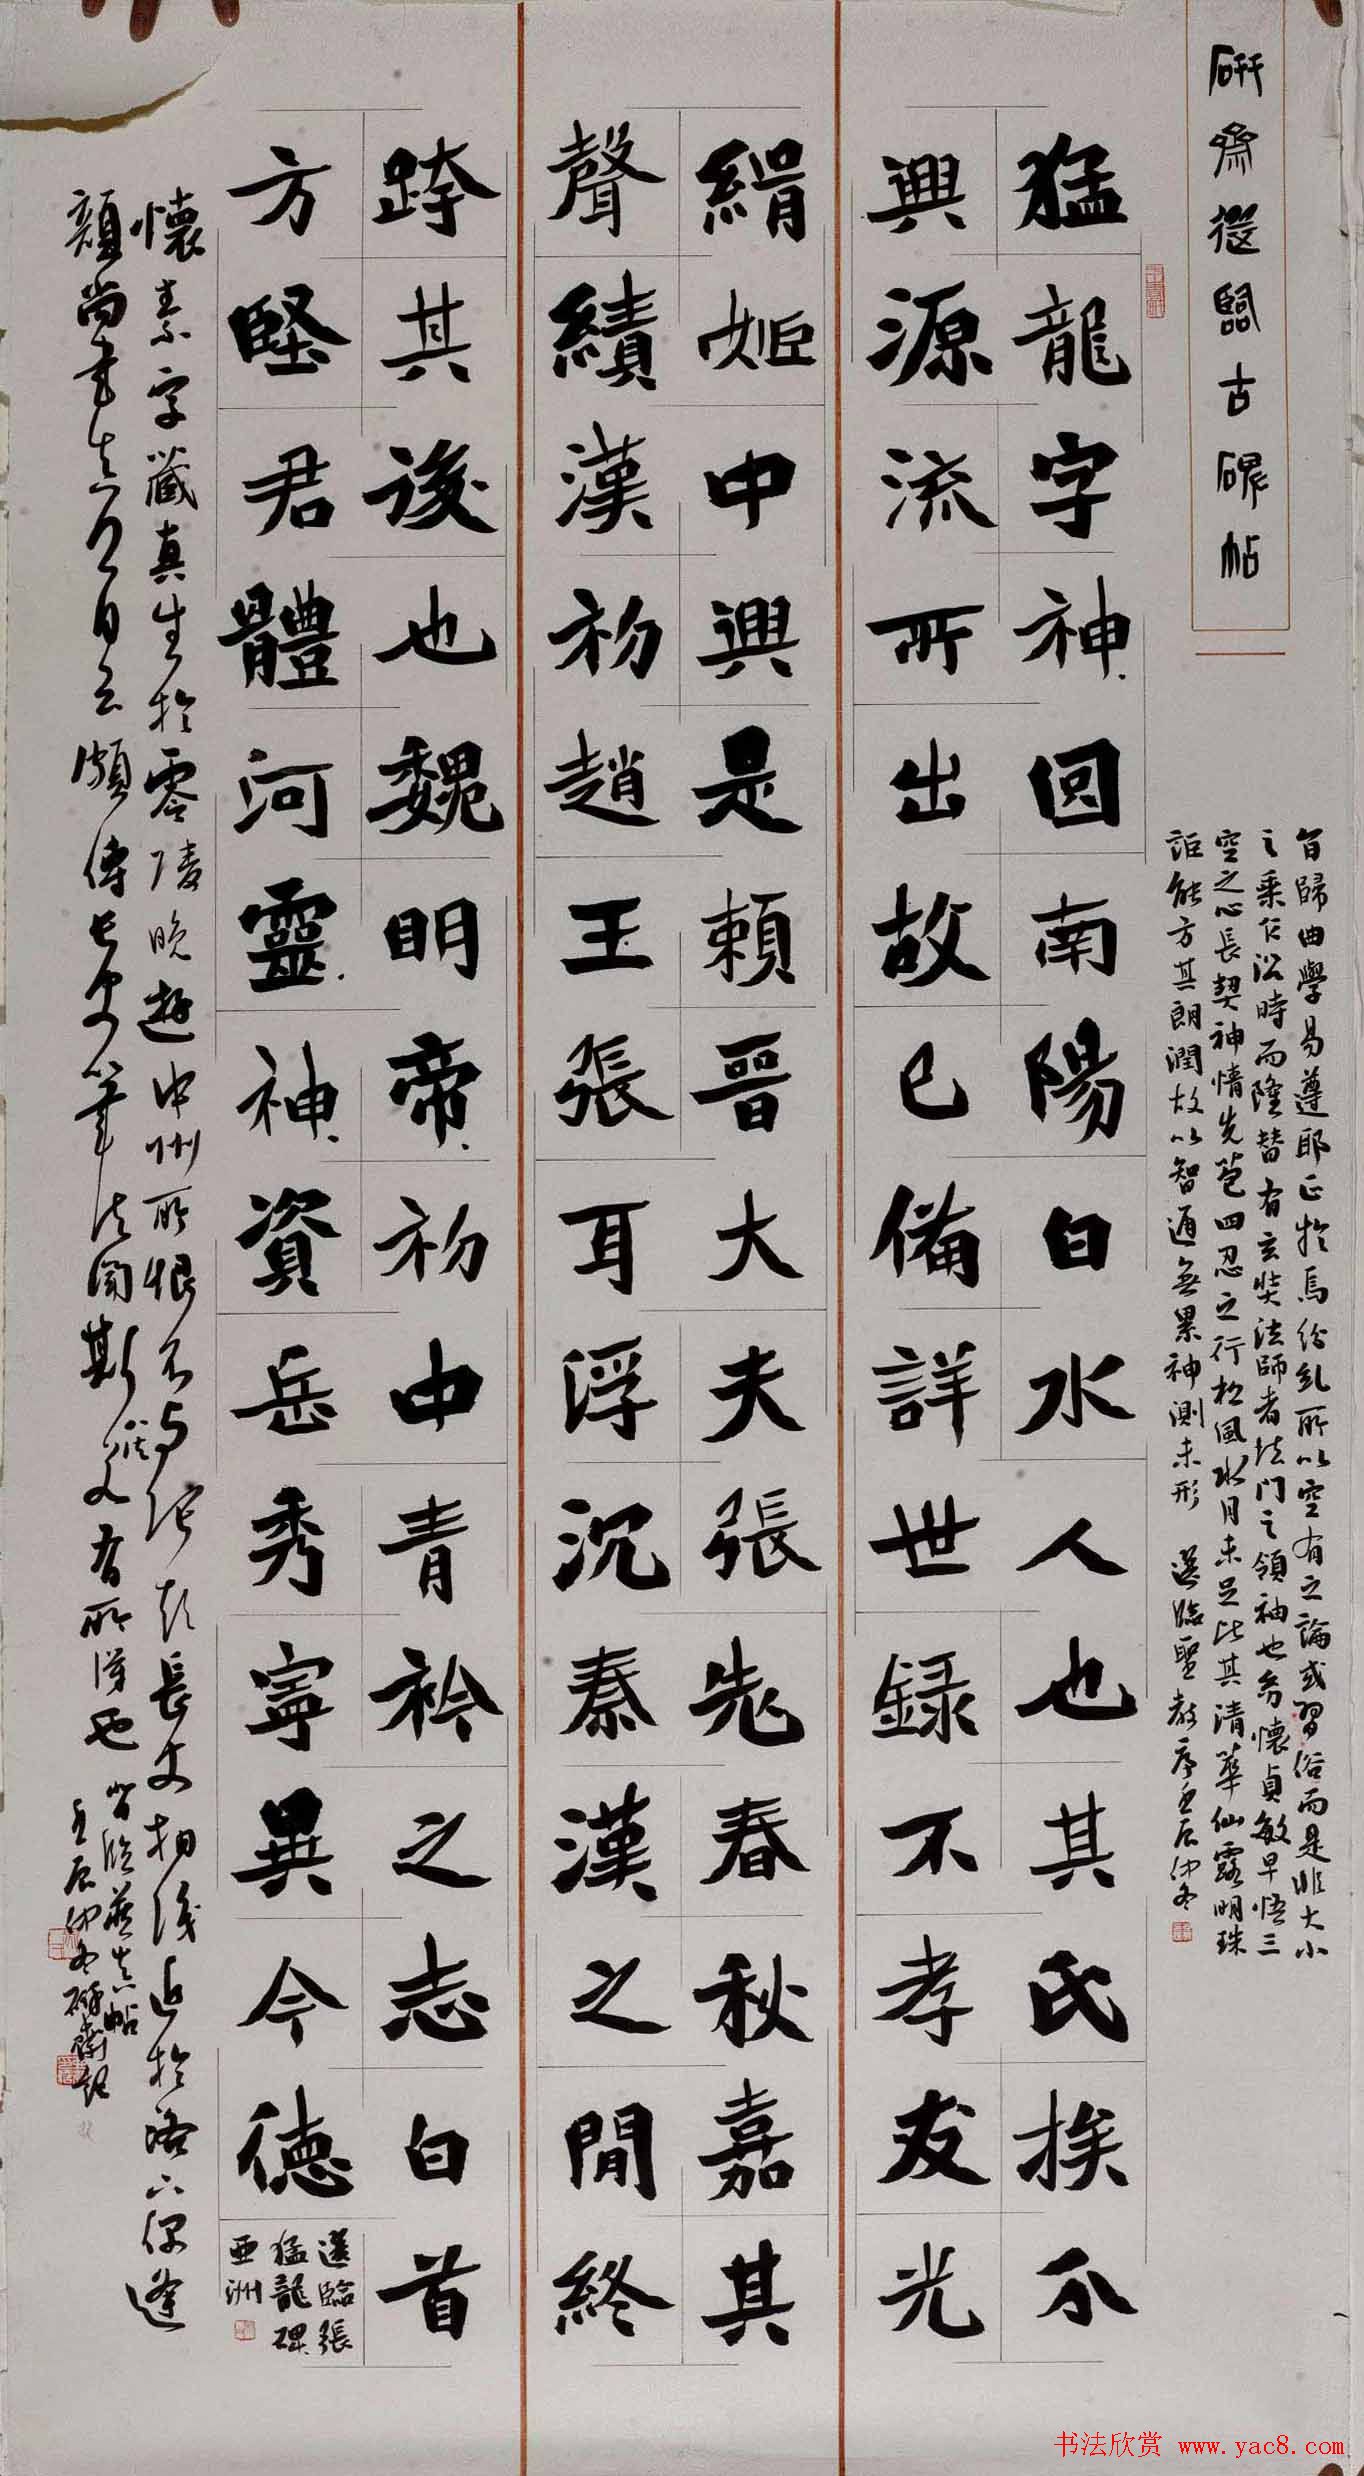 研齋選臨古碑帖
旨歸曲學易遵耶正於焉紛糺所以空有之論或習俗而是非大小
之乘乍沿時而隆替有玄奘法師者法門之領袖也幼懷貞敏早悟三
空之心長契神情先苞四忍之行松風水月未足比其清華仙露明珠
詎能方其朗潤故以智通無累神測未形 選臨聖教序 壬辰仲冬
猛龍字神圀南陽白水人也其氏挨不
興源流所出故已備詳世録不孝友光
緝姬中興是賴晉大夫張老春秋嘉其
聲績漢初趙王張耳浮沉秦漢之間終
跨其後也魏明帝初中青衿之志白首
方堅君體河靈神資岳秀寧異今德
選臨張
猛龍碑
亞洲
懷素字藏真生於零陵晚遊中州所恨不與張顛長史相識近於洛下偶逢
顏尚書真卿自云頗傳長史筆法聞斯法若有所得也
背臨藏真帖
壬辰仲冬研齋記
书法欣赏 www.yac8.com